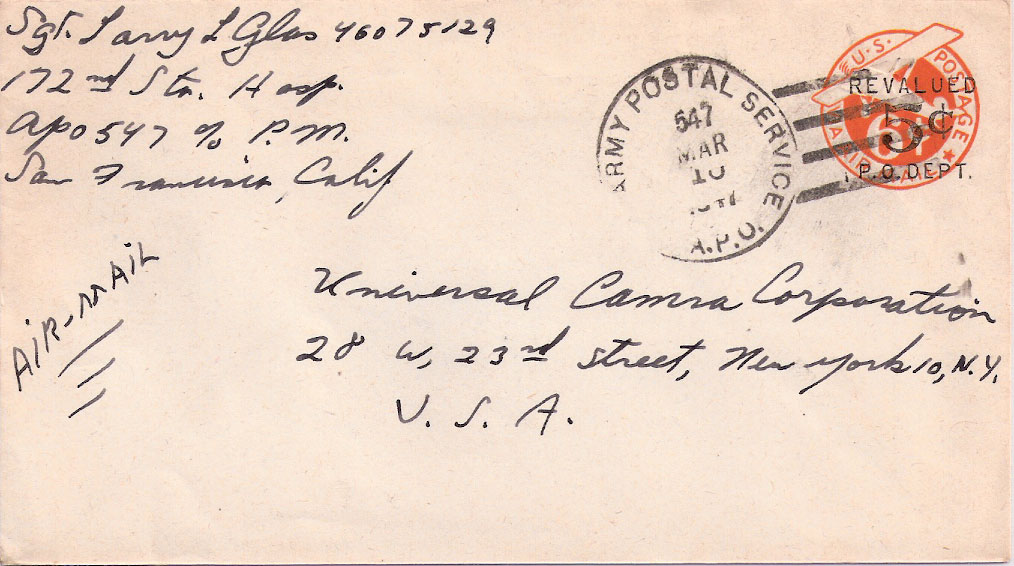 Sgt. Larry L Glas 46075129
172nd Sta. Hosp.
APO 547 c/o P.M.
San Francisco, Calif
ARMY POSTAL SERVICE
547
MAR
10
A.P.O.
U.S. POSTAGE
REVALUED
5¢
P.O. DEPT.
6¢
AIR-MAIL
Universal Camra Corporation
28 W, 23rd Street, New York 10, N.Y.
U. S. A.